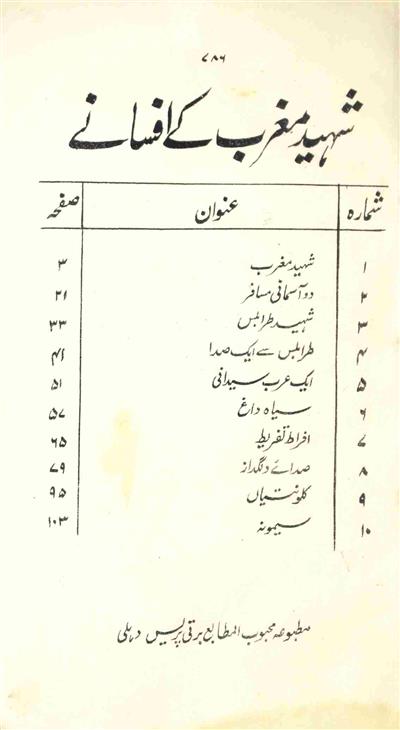 ۷۸۶
شہید مغرب کے افسانے
شمارہ عنوان صفحہ
۱ شہید مغرب ۳
۲ دو آسمانی مسافر ۲۱
۳ شہید طرابلس ۳۳
۴ طرابلس سے ایک صدا ۴۱
۵ ایک عرب سیدانی ۵۱
۶ سیاہ داغ ۵۷
۷ افراط تفریط ۶۵
۸ صدائے دلگداز ۷۹
۹ کلونتیاں ۹۵
۱۰ سیمونہ ۱۰۳
مطبوعہ محبوب المطابع برقی پریس دہلی